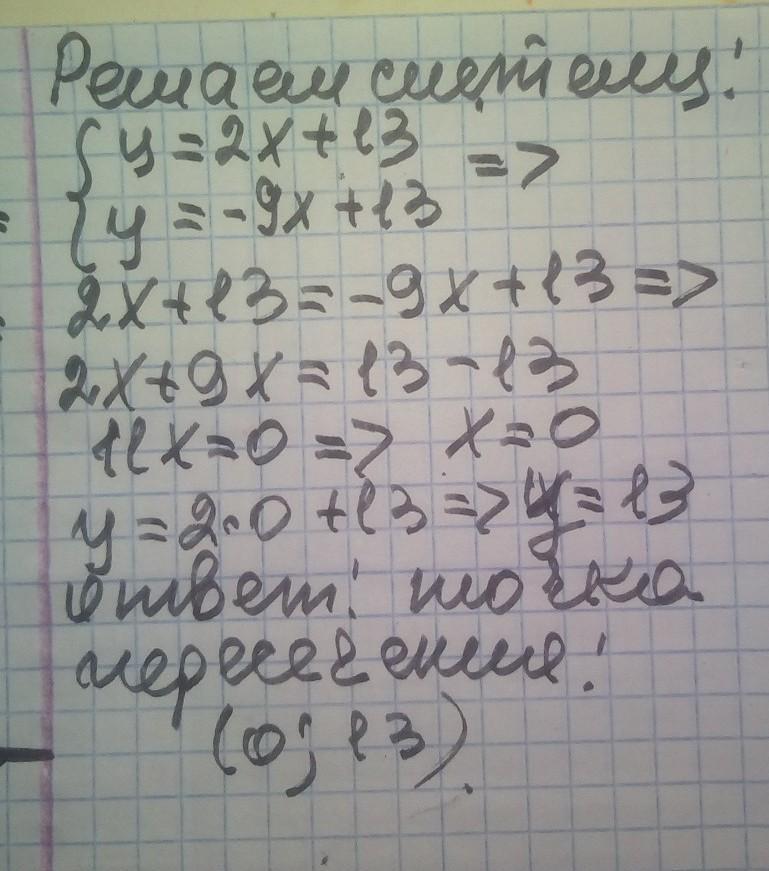 Решаем систему:
{ y = 2x + 13 =>
y = -9x + 13
2x + 13 = -9x + 13 =>
2x + 9x = 13 - 13
11x = 0 => x = 0
y = 2·0 + 13 => y = 13
Ответ: точка
пересечения:
(0; 13).